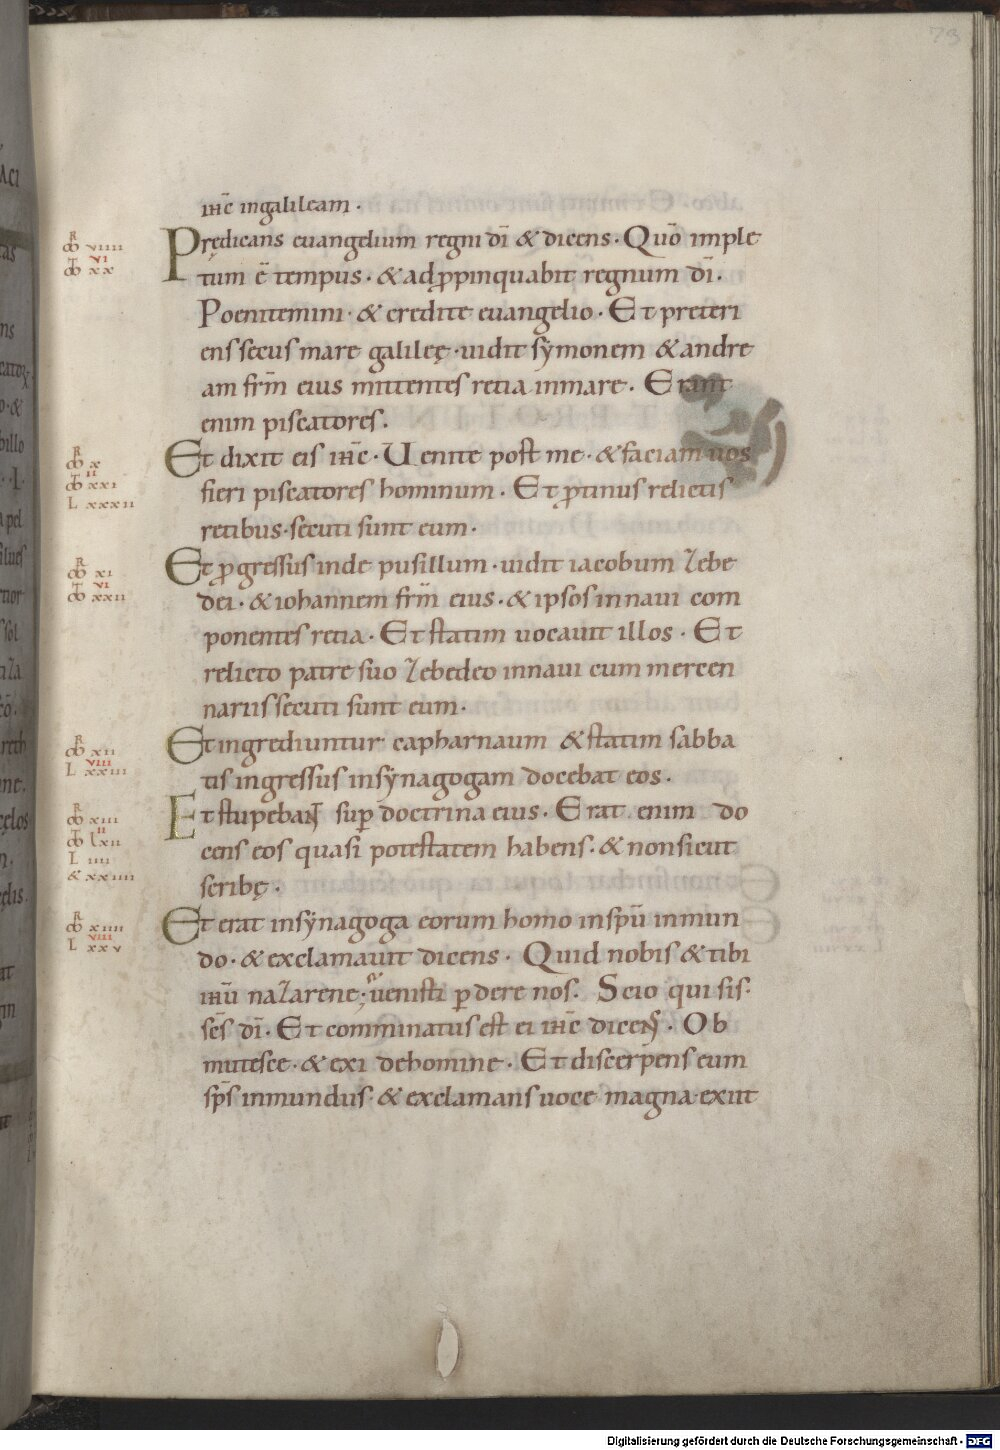 73
ihc̄ ingalileam ·
Prędicans euangelium regni dī & dicens · Quō imple
tum ē tempus · & adꝓpinquabit regnum dī ·
Poenitemini · & credite euangelio · Et preteri
ens secus mare galileę · uidit sẏmonem & andre
am frm̄ eius mittentes retia inmare · Erant
enim piscatores ·
Et dixit eis ihc̄ · Uenite post me · & faciam uos
fieri piscatores hominum · Et ꝓtinus relictis
retibus · secuti sunt eum ·
Et ꝓgressus inde pusillum · uidit iacobum zebe
dei · & iohannem frm̄ eius · & ipsos innaui com
ponentes retia · Et statim uocauit illos · Et
relicto patre suo zebedeo innaui cum mercen
nariis secuti sunt eum ·
Et ingrediuntur capharnaum & statim sabba
tis ingressus insẏnagogam docebat eos ·
Et stupebant sup̄ doctrina eius · Erat enim do
cens eos quasi potestatem habens · & nonsicut
scribę ·
Et erat insẏnagoga eorum homo inspū inmun
do · & exclamauit dicens · Quid nobis & tibi
ihū nazarene ; uenisti ꝑdere nos · Scio qui sis ·
scs̄ dī · Et comminatus est ei ihc̄ dicens · Ob
mutesce · & exi dehomine · Et discerpens eum
sps̄ inmundus · & exclamans uoce magna · exiit
Digitalisierung gefördert durch die Deutsche Forschungsgemeinschaft - DFG